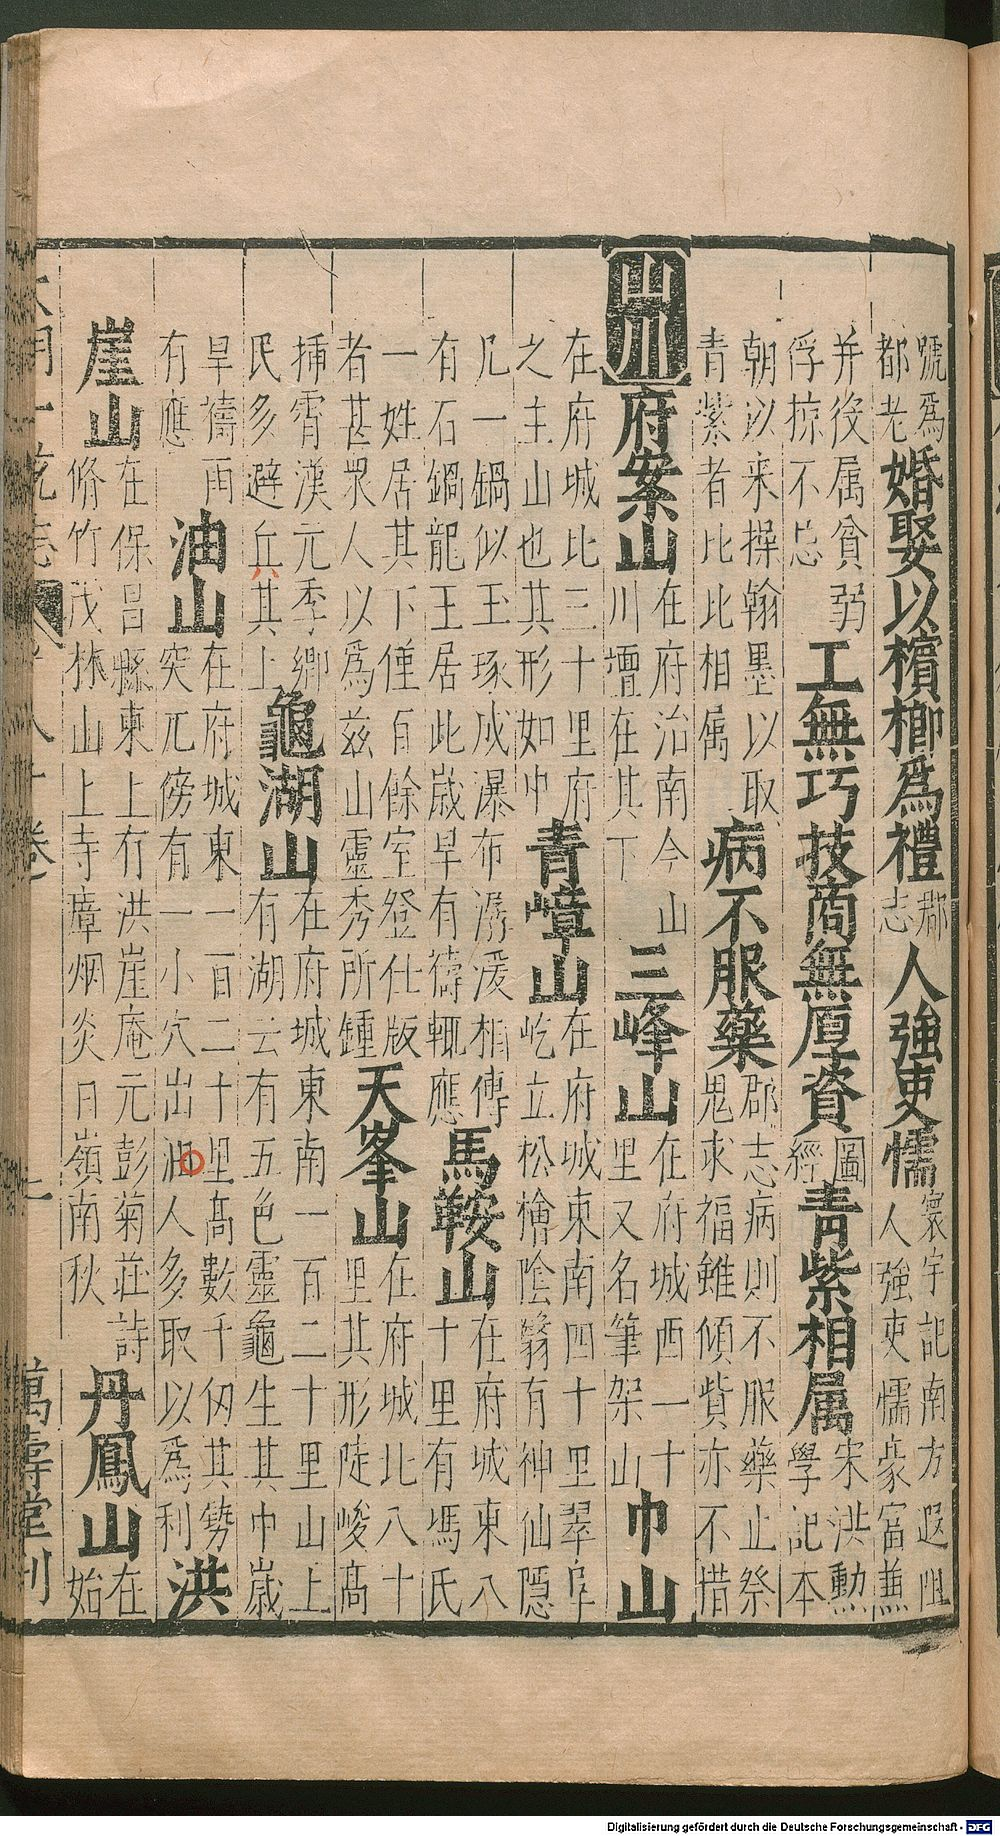 號爲都老婚娶以檳榔爲禮郡志人強吏懦寰宇記南方遐阻人強吏懦豪富兼
并役属貧弱俘掠不忌工無巧技商無厚資圖經青紫相属宋洪勲學記本
朝以来操翰墨以取青紫者比比相属病不服藥郡志病則不服藥止祭鬼求福雖傾貲亦不惜
山川府案山在府治南今山川壇在其下三峰山在府城西一十里又名筆架山巾山
在府城北三十里府之主山也其形如巾青嶂山在府城東南四十里翠阜屹立松檜陰翳有神仙隠
几一鍋似玉琢成瀑布潺湲相傳有石鍋龍王居此歲旱有禱輒應馬鞍山在府城東八十里有馮氏
一姓居其下僅百餘室登仕版者甚眾人以爲兹山靈秀所鍾天峯山在府城北八十里其形陡峻高
挿霄漢元季鄉民多避兵其上龜湖山在府城東南一百二十里山上有湖云有五色靈龜生其中歲
旱禱雨有應油山在府城東一百二十里高數千仞其勢突兀傍有一小穴出油人多取以爲利洪
崖山在保昌縣東上有洪崖庵元彭菊莊詩脩竹茂林山上寺瘴烟炎日嶺南秋丹鳳山在始
大明一統志 八十卷 七 萬壽堂刊
Digitalisierung gefördert durch die Deutsche Forschungsgemeinschaft - DFG